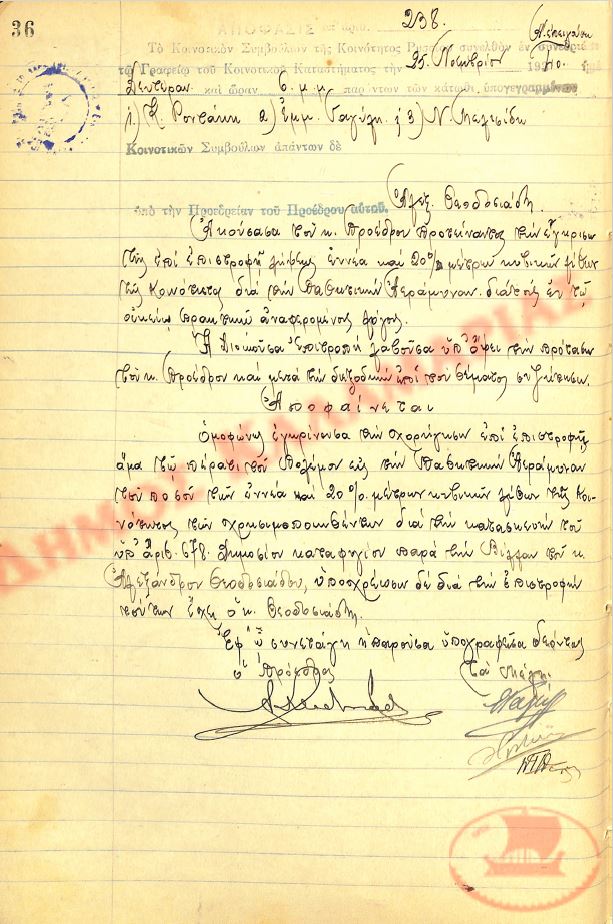 36
ΑΠΟΦΑΣΙΣ ὑπ' ἀριθ. 238.
Τὸ Κοινοτικὸν Συμβούλιον τῆς Κοινότητος συνελθὸν ἐν συνεδριάσει
τῷ Γραφείῳ τοῦ Κοινοτικοῦ Καταστήματος τὴν 25 Νοεμβρίου 19 40.
Δευτέραν καὶ ὥραν 6 μ.μ παρόντων τῶν κάτωθι ὑπογεγραμμένων
1) Κ. 2) Ἐμμ. 3) Ν.
Κοινοτικῶν Συμβούλων ἀπάντων δὲ
ὑπὸ τὴν Προεδρείαν τοῦ Προέδρου αὐτοῦ. Ἀλεξ. Θεοδοσιάδη.
Ἀκούσασα τοῦ κ. Προέδρου προτείναντος τὴν ἔγκρισιν
τῆς ἐπὶ ἐπιστροφῇ λήψεως ἐννέα καὶ 20% μέτρων κυβικῶν λίθων
τῆς Κοινότητος διὰ τὴν Παθητικὴν Ἀεράμυναν διὰ τοὺς ἐν τῷ
οἰκείῳ πρακτικῷ ἀναφερομένους λόγους.
Ἡ Διοικοῦσα Ἐπιτροπὴ λαβοῦσα ὑπ' ὄψει τὴν πρότασιν
τοῦ κ. Προέδρου καὶ μετὰ τὴν διεξοδικὴν ἐπὶ τοῦ θέματος συζήτησιν.
Ἀποφαίνεται
Ὁμοφώνως ἐγκρίνουσα τὴν χορήγησιν ἐπὶ ἐπιστροφῇ
ἅμα τῷ πέρατι τοῦ Πολέμου εἰς τὴν Παθητικὴν Ἀεράμυναν
τοῦ ποσοῦ τῶν ἐννέα καὶ 20% μέτρων κυβικῶν λίθων τῆς Κοι-
νότητος τῶν χρησιμοποιηθέντων διὰ τὴν κατασκευὴν τοῦ
ὑπ' ἀριθ. 678 Δημοσίου καταφυγίου παρὰ τὴν Βίλλαν τοῦ κ.
Ἀλεξάνδρου Θεοδοσιάδου, ὑποχρέωσιν δὲ διὰ τὴν ἐπιστροφὴν
τούτων ἔχει ὁ κ. Θεοδοσιάδης.
Ἐφ' ᾧ συνετάγη ἡ παροῦσα ὑπογραφεῖσα δεόντως
Ὁ Πρόεδρος Τὰ Μέλη.
ΔΗΜΟΣ ΚΑΛΑΜΑΡΙΑΣ